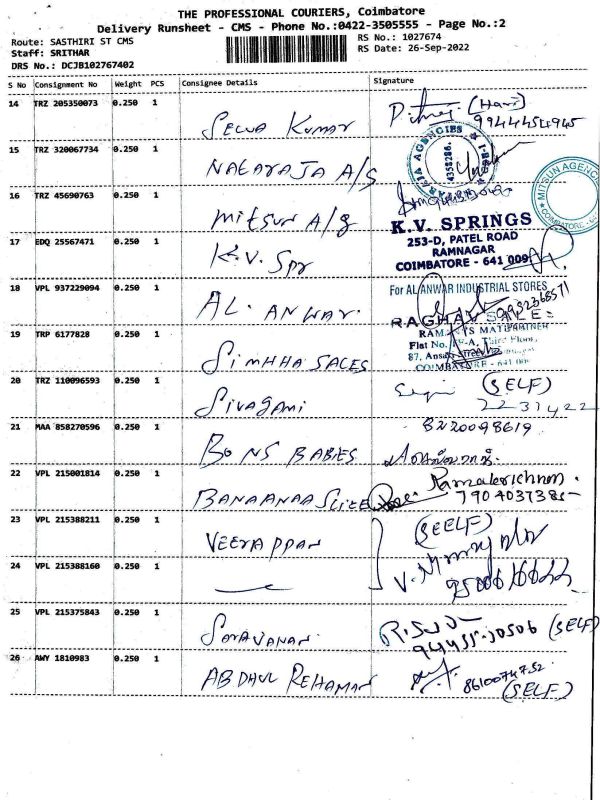 THE PROFESSIONAL COURIERS, Coimbatore
Delivery Runsheet - CMS - Phone No.:0422-3505555 - Page No.:2
Route: SASTHIRI ST CMS
RS No.: 1027674
Staff: SRITHAR
RS Date: 26-Sep-2022
DRS No.: DCJB102767402
S No Consignment No Weight PCS Consignee Details Signature
14 TRZ 205350073 0.250 1
SELVA KUMAR
(Hari)
9944454945
15 TRZ 320067734 0.250 1
NATARAJA A/S
16 TRZ 45690763 0.250 1
MITSUN A/g
MITSUN AGENC
COIMBATORE
17 EDQ 25567471 0.250 1
K.V. Spr
K.V. SPRINGS
253-D, PATEL ROAD
RAMNAGAR
COIMBATORE - 641 009
18 VPL 937229094 0.250 1
AL. ANWAR.
For AL ANWAR INDUSTRIAL STORES
19 TRP 6177828 0.250 1
SIMHHA SALES
20 TRZ 110096593 0.250 1
Sivagami
(SELF)
2231422
21 MAA 858270596 0.250 1
BONS BABIES
8220098619
22 VPL 215001814 0.250 1
BANAANAA
Ramakrishnan.
23 VPL 215388211 0.250 1
VEERAPPAN
(SEELF)
24 VPL 215388160 0.250 1
25 VPL 215375843 0.250 1
SARAVANAN
(SELF)
26 AWY 1810983 0.250 1
ABDHUL REHAMAN
8610074752
(SELF)